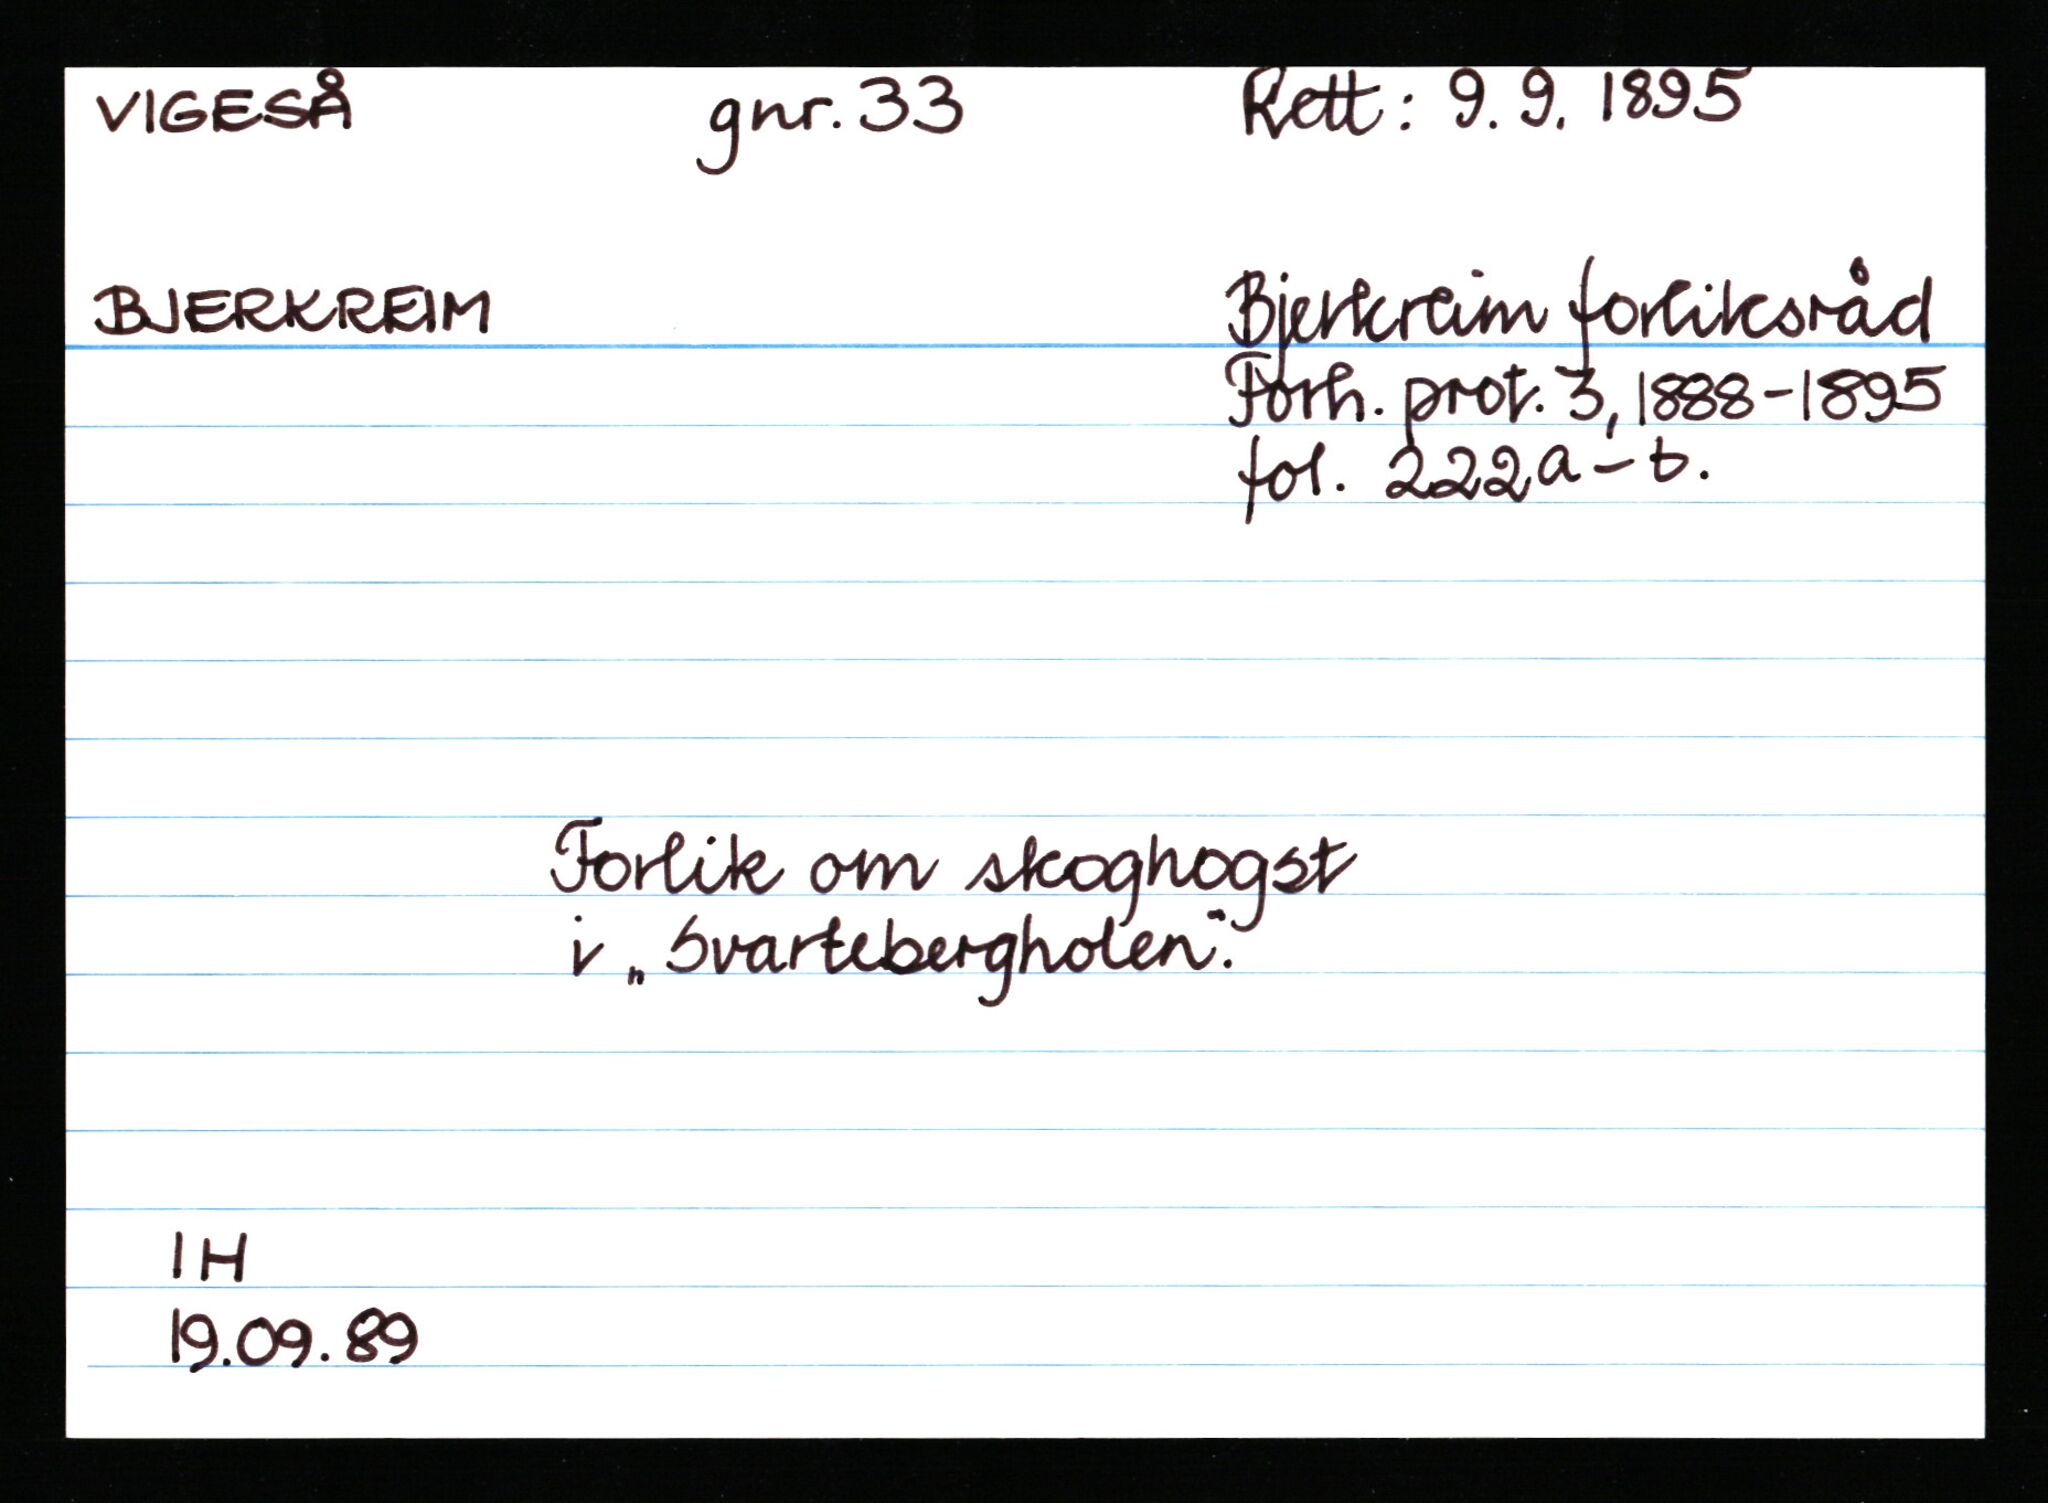 VIGESÅ gnr. 33 Rett: 9. 9. 1895
BJERKREIM Bjerkreim forliksråd
Forh. prot. 3, 1888-1895
fol. 222a-b.
Forlik om skoghogst
i „Svartebergholen".
IH
19.09.89